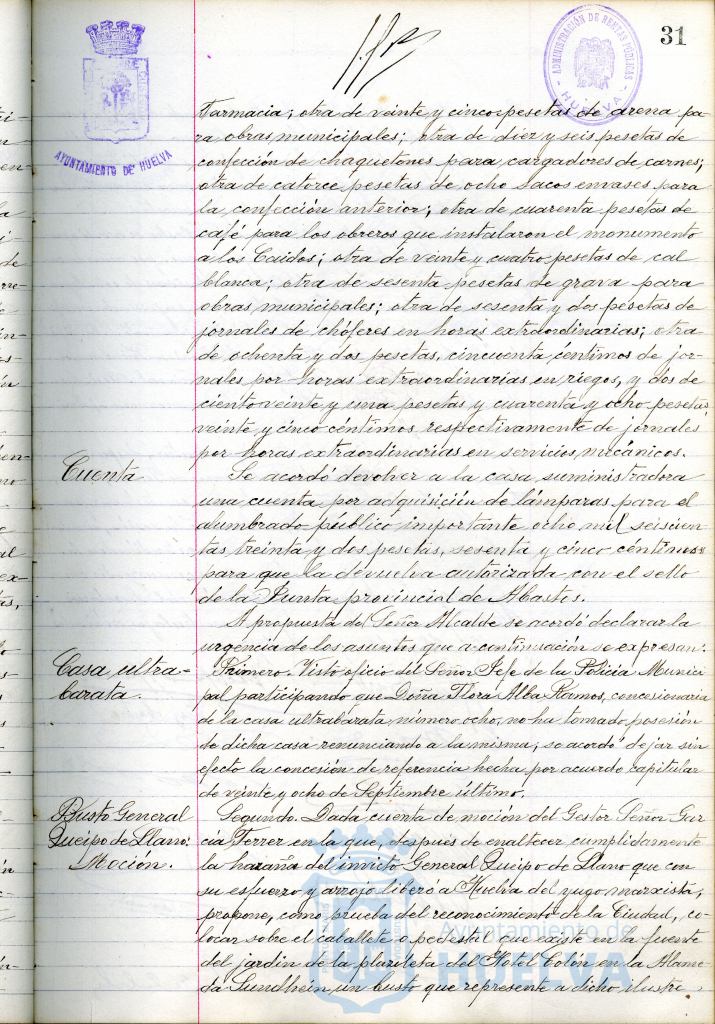 31
ADMINISTRACIÓN DE RENTAS PÚBLICAS
HUELVA
AYUNTAMIENTO DE HUELVA
Farmacia; otra de veinte y cinco pesetas de arena pa-
ra obras municipales; otra de diez y seis pesetas de
confección de chaquetones para cargadores de carnes;
otra de catorce pesetas de ocho sacos envases para
la confección anterior; otra de cuarenta pesetas de
café para los obreros que instalaron el monumento
a los Caidos; otra de veinte y cuatro pesetas de cal
blanca; otra de sesenta pesetas de grava para
obras municipales; otra de sesenta y dos pesetas de
jornales de chóferes en horas extraordinarias; otra
de ochenta y dos pesetas, cincuenta céntimos de jor-
nales por horas extraordinarias en riegos, y dos de
ciento veinte y una pesetas y cuarenta y ocho pesetas
veinte y cinco céntimos respectivamente de jornales
por horas extraordinarias en servicios mecánicos.
Cuenta Se acordó devolver a la casa suministradora
una cuenta por adquisición de lámparas para el
alumbrado público importante ocho mil seiscien-
tas treinta y dos pesetas, sesenta y cinco céntimos
para que la devuelva autorizada con el sello
de la Junta provincial de Abastos.
A propuesta del Señor Alcalde se acordó declarar la
urgencia de los asuntos que a continuación se expresan:
Casa ultra- Primero. Visto oficio del Señor Jefe de la Policía Munici
barata. pal participando que Doña Flora Alba Ramos, concesionaria
de la casa ultrabarata número ocho, no ha tomado posesión
de dicha casa renunciando a la misma, se acordó dejar sin
efecto la concesión de referencia hecha por acuerdo capitular
de veinte y ocho de Septiembre último.
Busto General Segundo. Dada cuenta de moción del Gestor Señor Gar
Queipo de Llano: cía Ferrer en la que, después de enaltecer cumplidamente
Moción. la hazaña del invicto General Queipo de Llano que con
su esfuerzo y arrojo liberó a Huelva del yugo marxista,
propone, como prueba del reconocimiento de la Ciudad, co-
locar sobre el caballete o pedestal que existe en la fuente
del jardin de la plazoleta del Hotel Colón en la Alame
da Sundhein un busto que represente a dicho ilustre
Ayuntamiento de
HUELVA